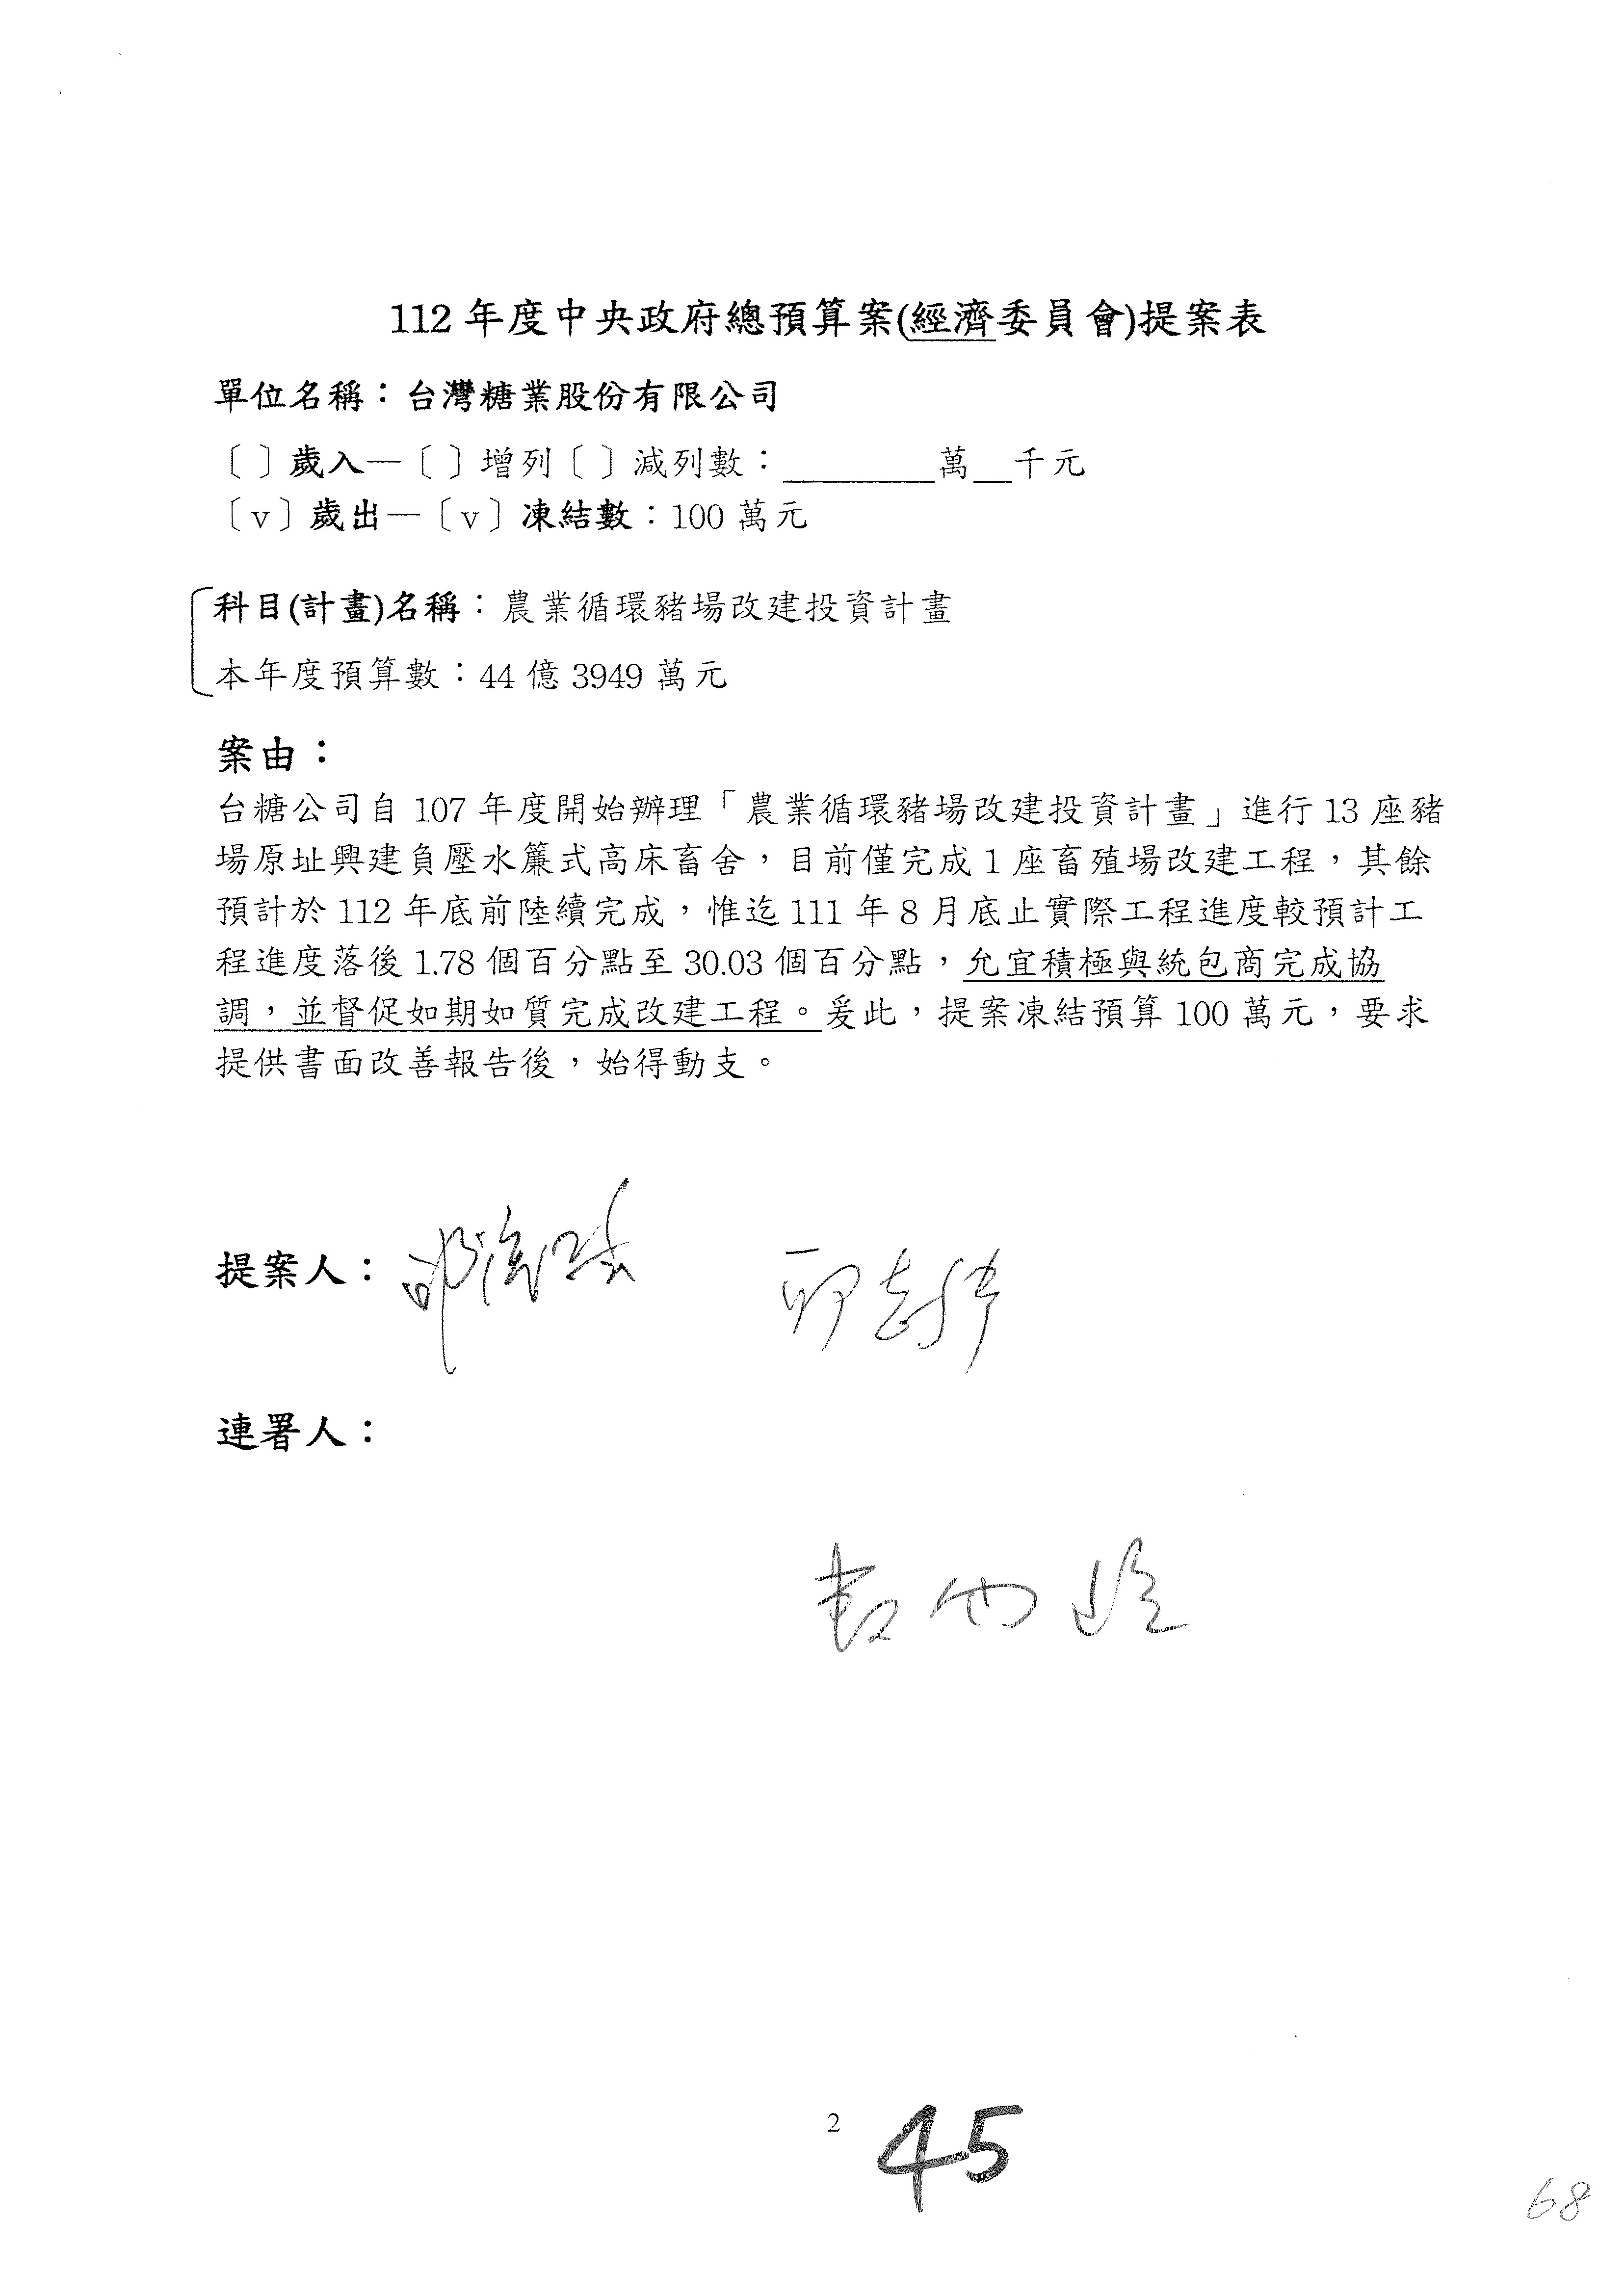 112 年度中央政府總預算案(經濟委員會)提案表
單位名稱：台灣糖業股份有限公司
〔 〕歲入—〔 〕增列〔 〕減列數：________萬__千元
〔v〕歲出—〔v〕凍結數：100 萬元
科目(計畫)名稱：農業循環豬場改建投資計畫
本年度預算數：44 億 3949 萬元
案由：
台糖公司自 107 年度開始辦理「農業循環豬場改建投資計畫」進行 13 座豬
場原址興建負壓水簾式高床畜舍，目前僅完成 1 座畜殖場改建工程，其餘
預計於 112 年底前陸續完成，惟迄 111 年 8 月底止實際工程進度較預計工
程進度落後 1.78 個百分點至 30.03 個百分點，允宜積極與統包商完成協
調，並督促如期如質完成改建工程。爰此，提案凍結預算 100 萬元，要求
提供書面改善報告後，始得動支。
提案人：邱志偉
連署人：
2 45
68